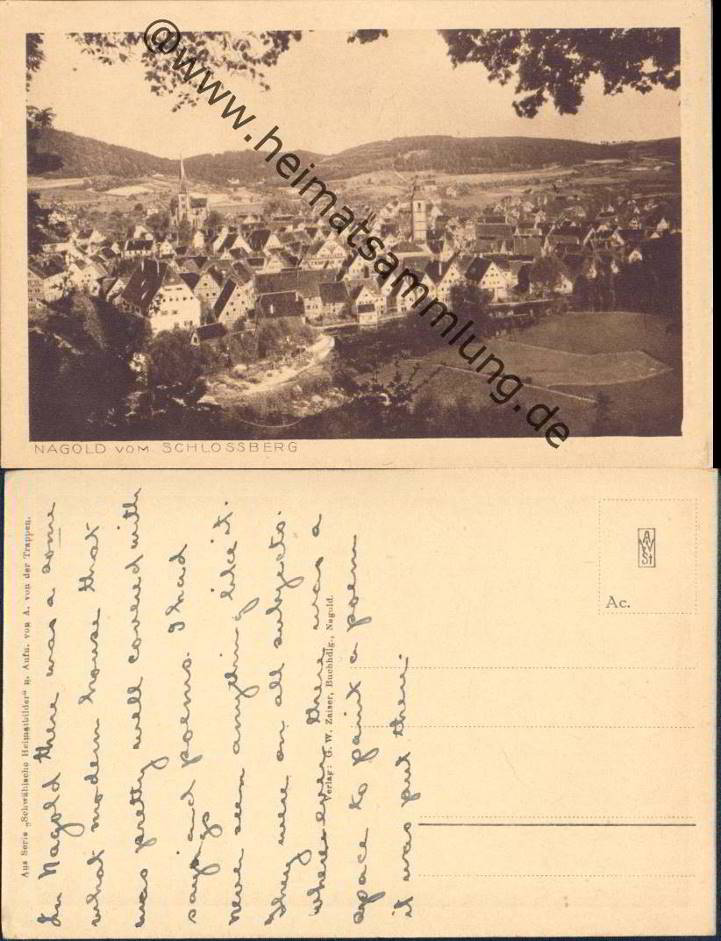 @www.heimatsammlung.de
NAGOLD VOM SCHLOSSBERG
Aus Serie „Schwäbische Heimatbilder" n. Aufn. von A. von der Trappen.
In Nagold there was a some
what modern house that
was pretty well covered with
sayings and poems. I had
never seen anything like it.
They were on all subjects.
wherever there was a
space to paint a poem
it was put there.
Verlag: G. W. Zaiser, Buchhdlg., Nagold.
A
V
St
Ac.